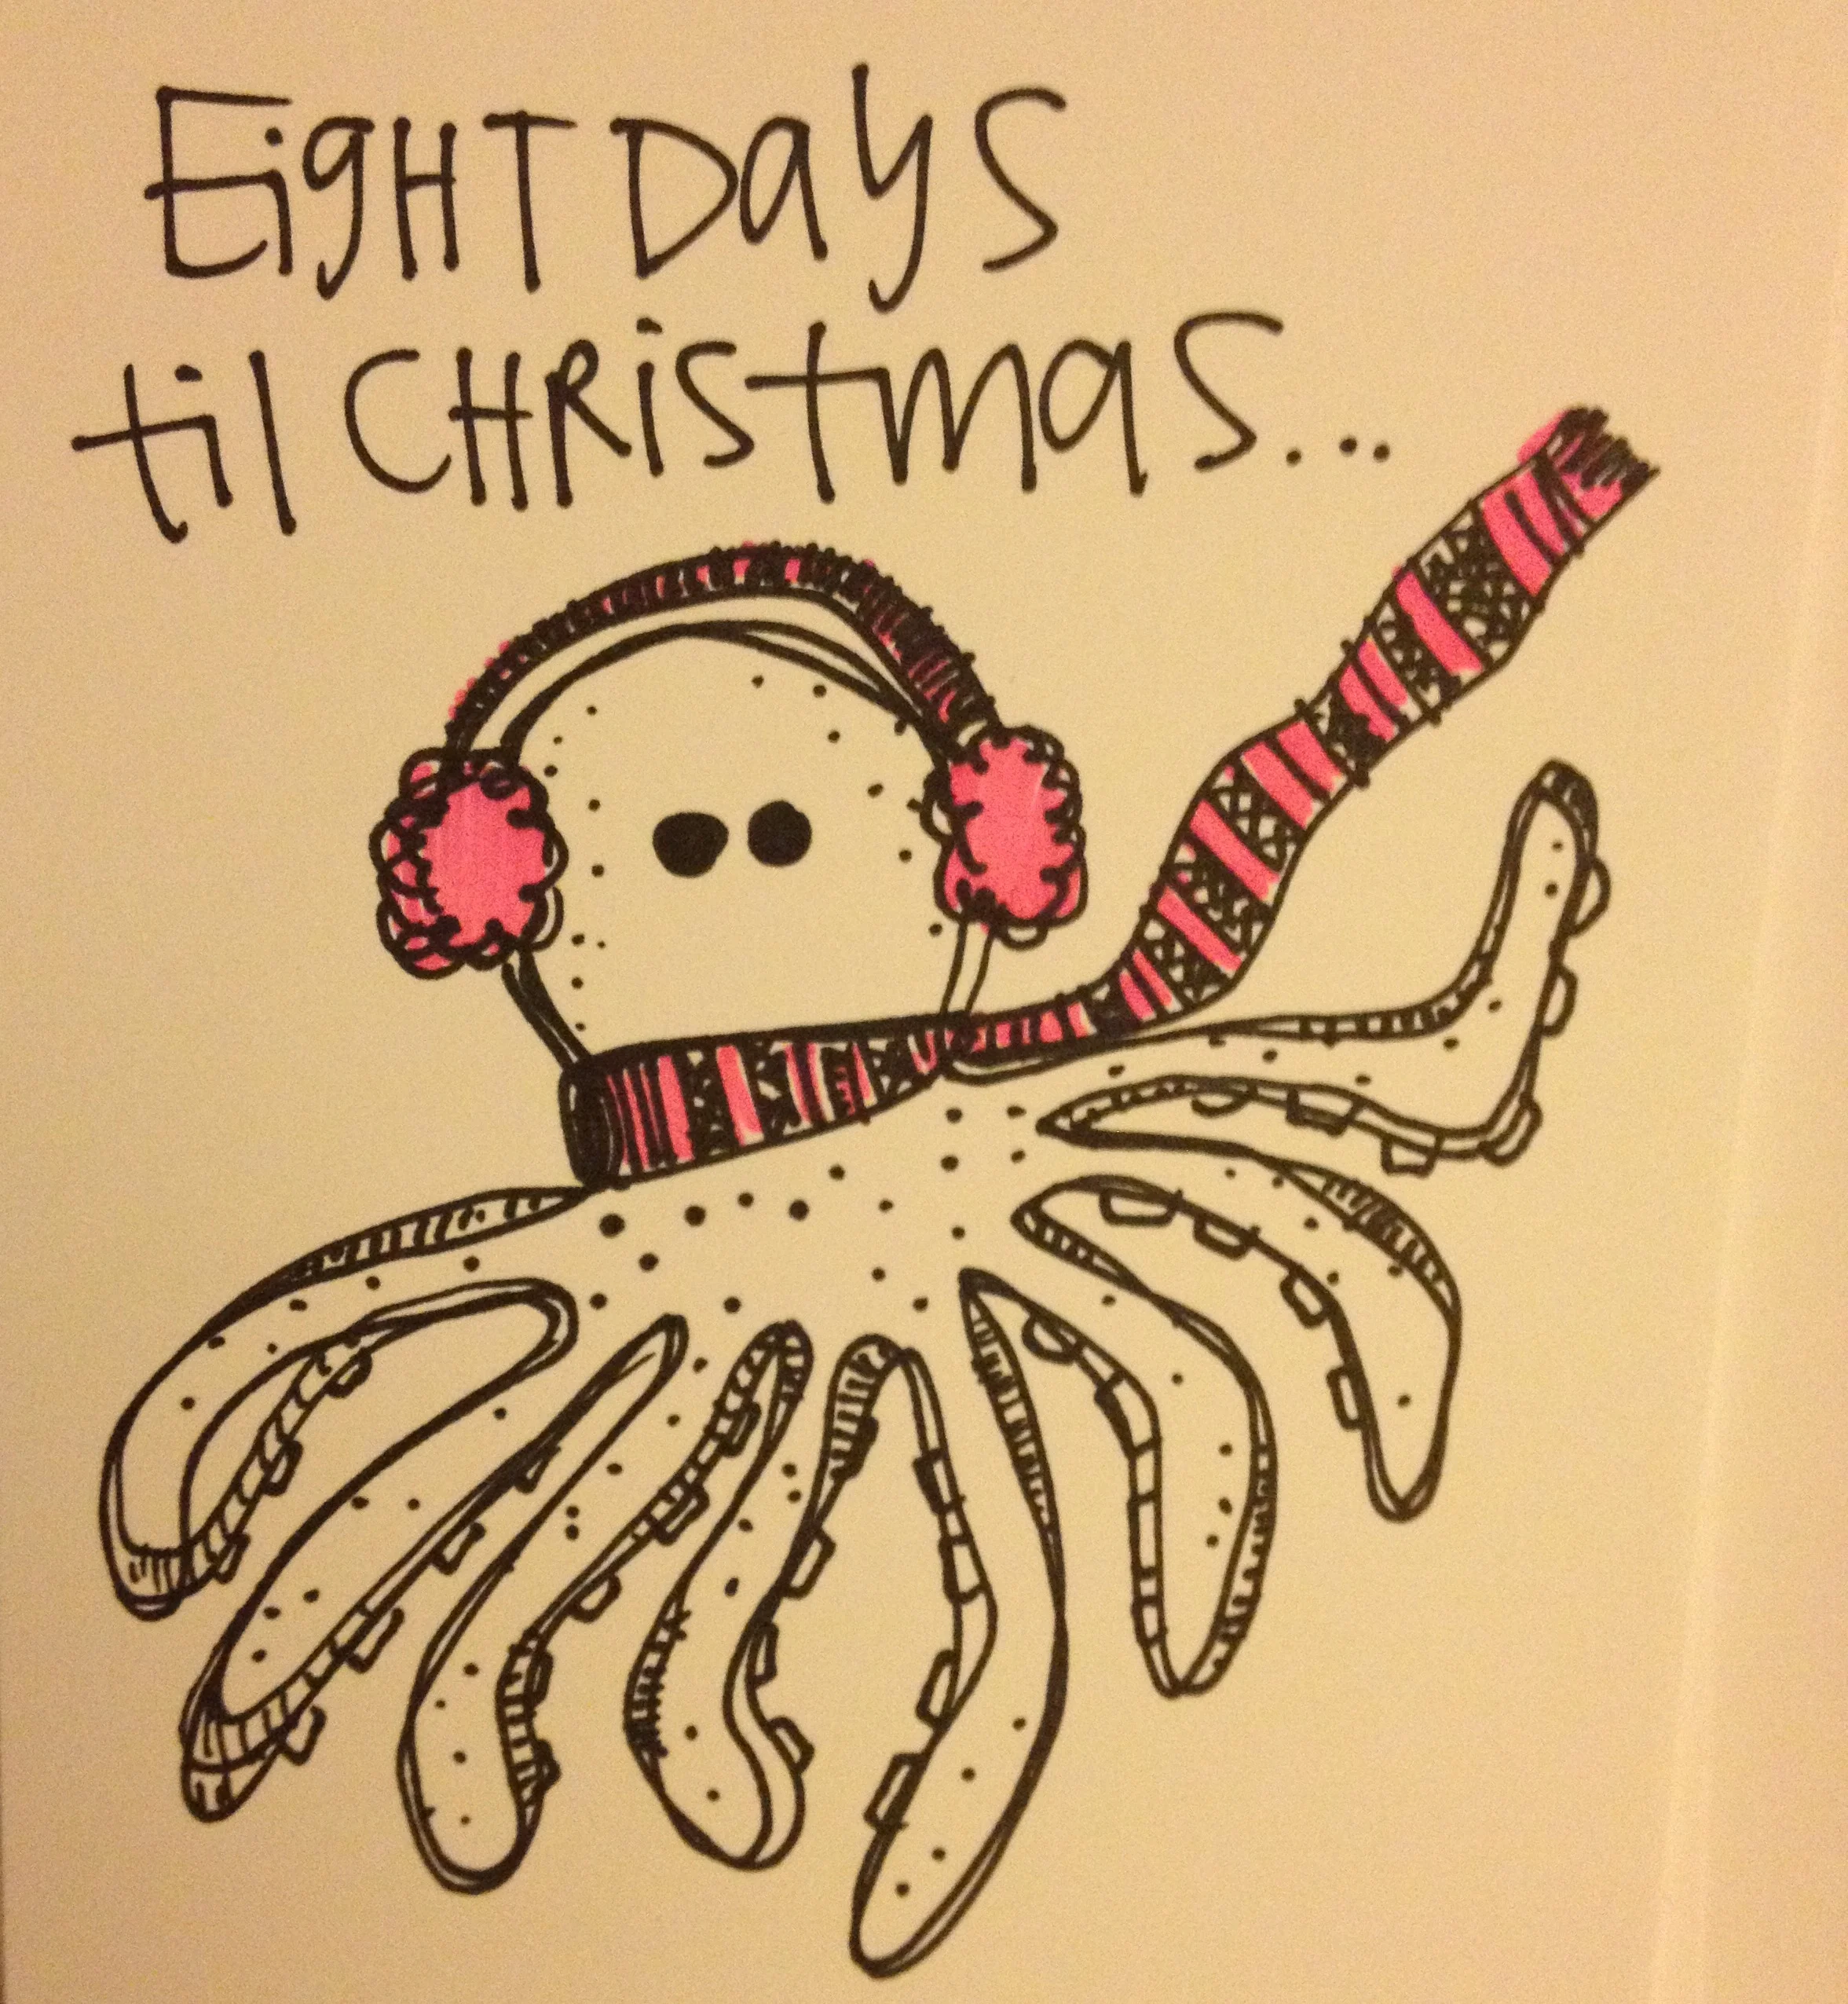 EigHT Days
til CHRistmas...